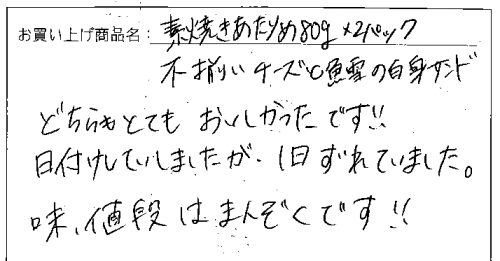 お買い上げ商品名：素焼きあたりめ80g×2パック
不揃いチーズと魚雪の白身サンド
どちらもとてもおいしかったです!!
日付けしていしましたが、1日ずれていました。
味、値段はまんぞくです!!